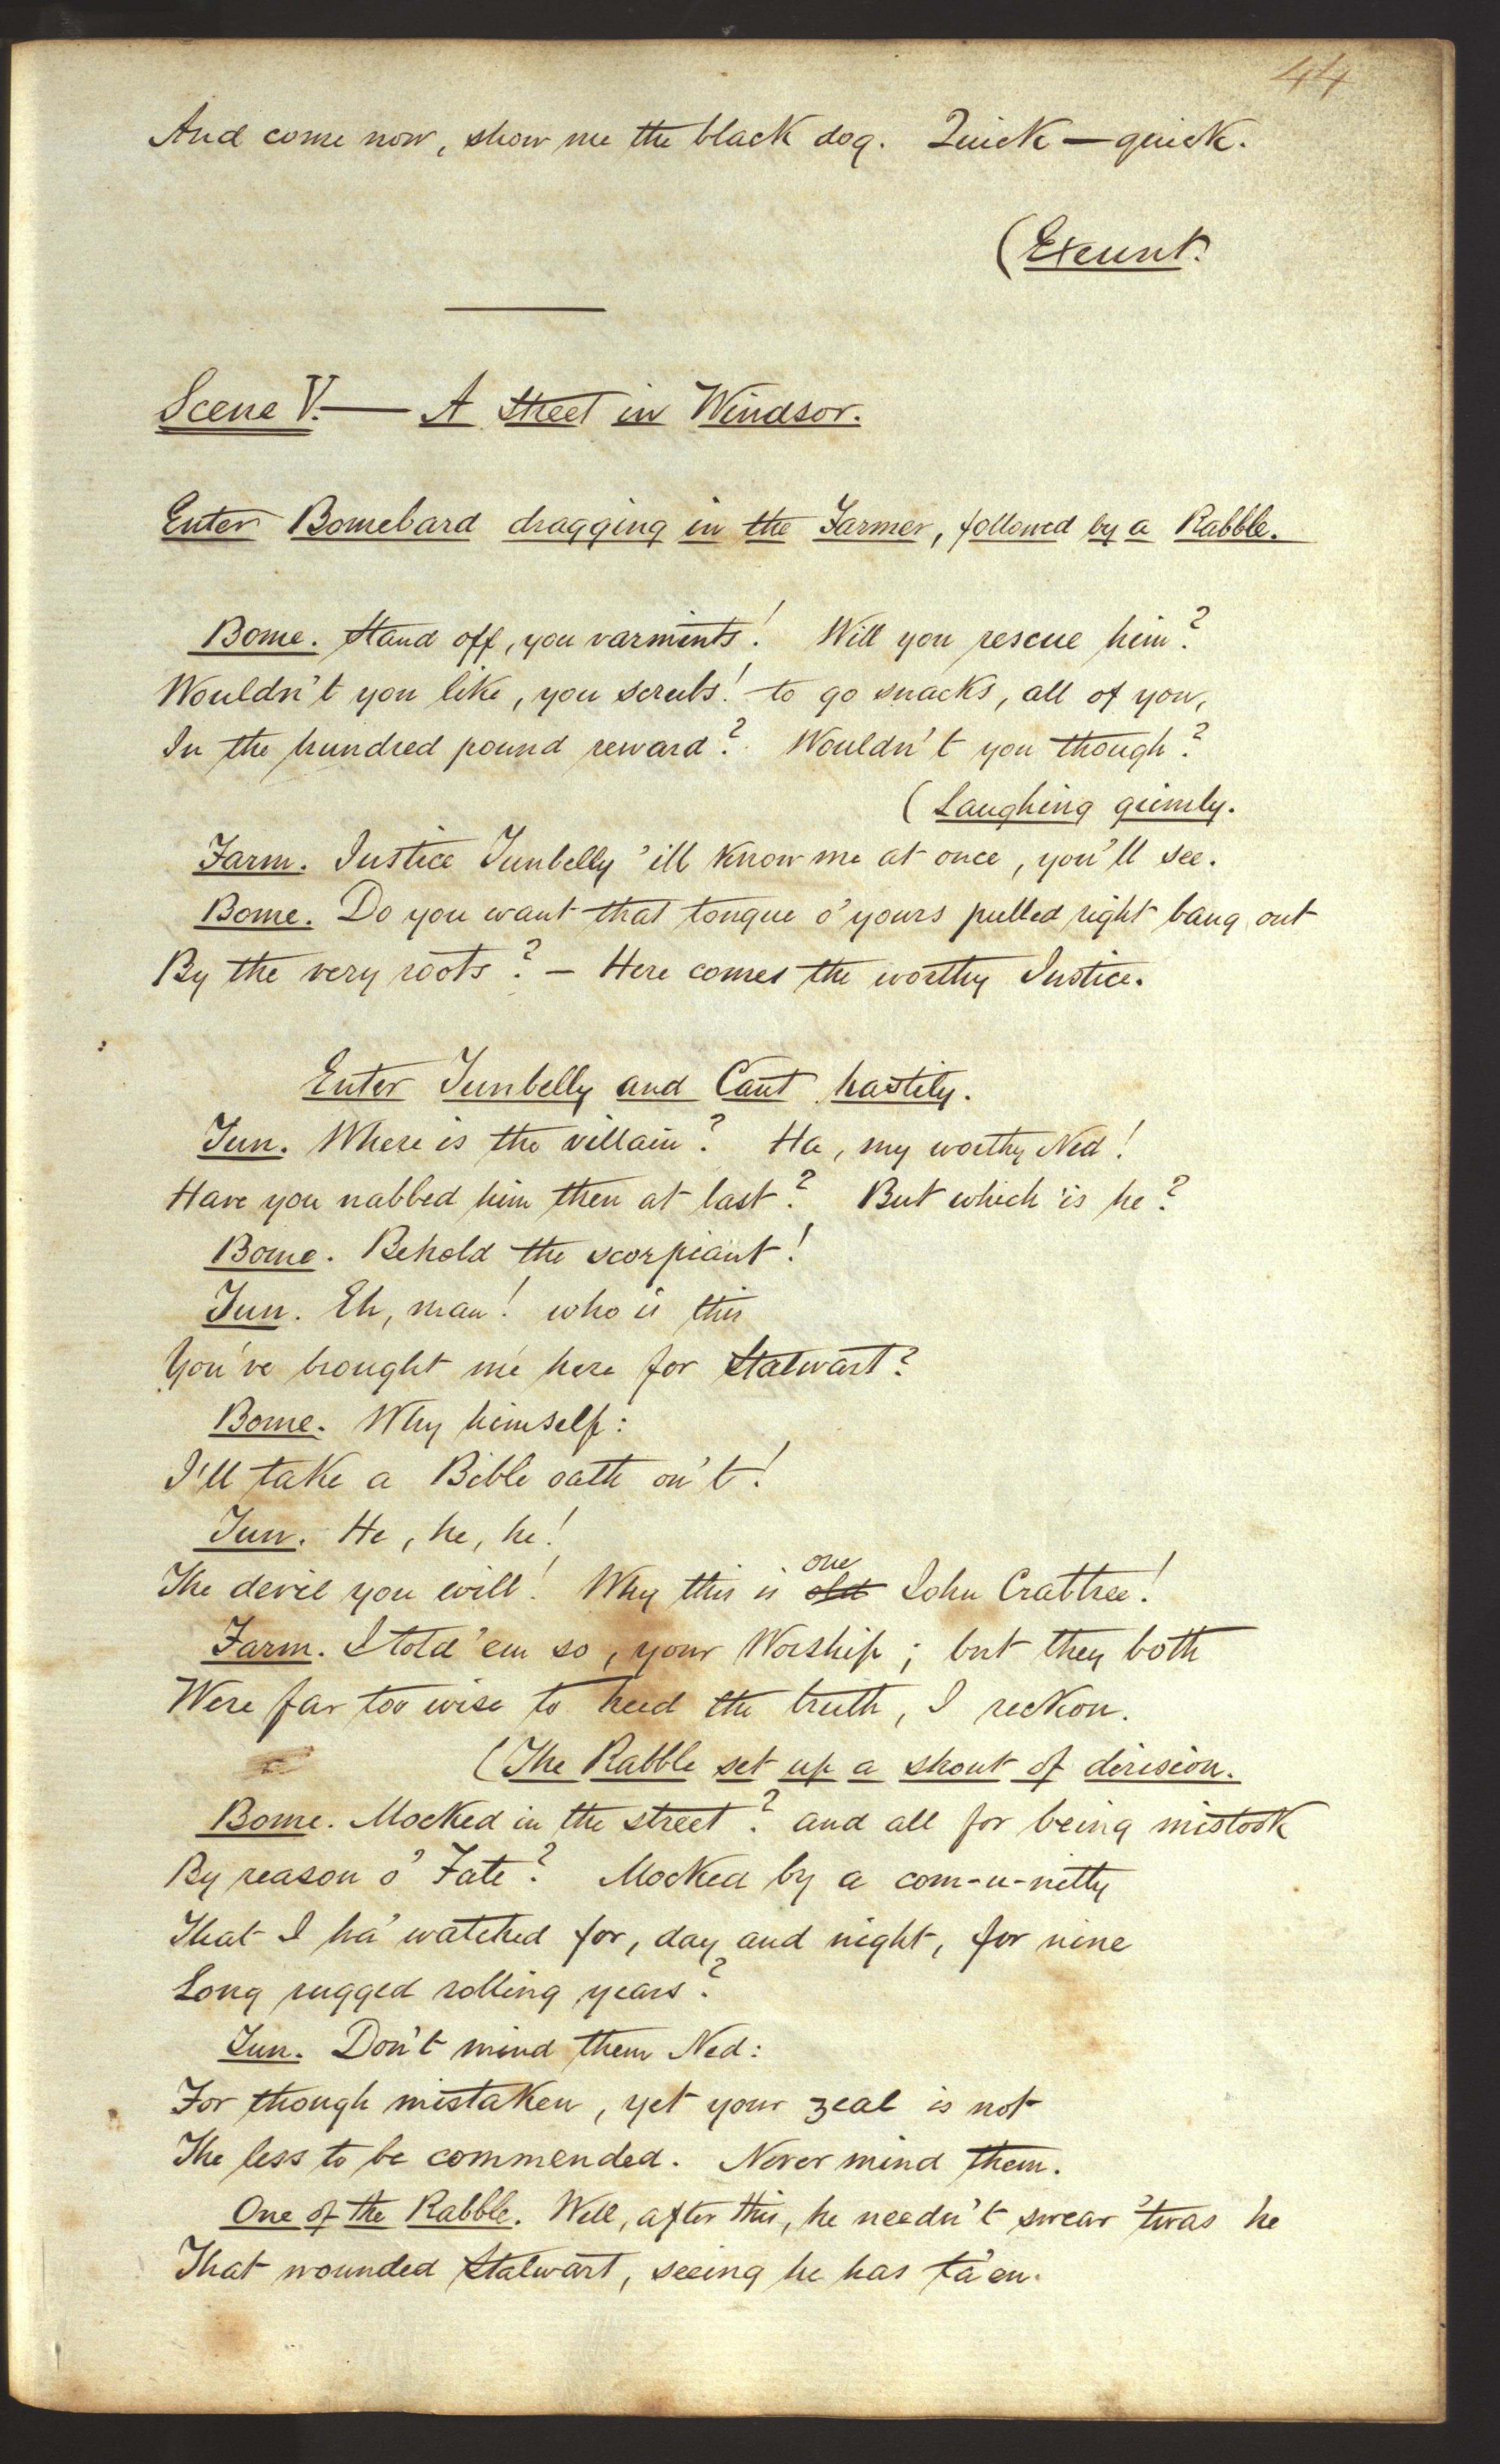 44
And come now, show me the black dog. Quick — quick.
(Exeunt.
Scene V. — A Street in Windsor.
Enter Bomebard dragging in the Farmer, followed by a Rabble.
Bome. Stand off, you varmints! Will you rescue him?
Wouldn't you like, you scrubs! to go snacks, all of you,
In the hundred pound reward? Wouldn't you though?
(Laughing grimly.
Farm. Justice Tunbelly 'ill know me at once, you'll see.
Bome. Do you want that tongue o' yours pulled right bang out
By the very roots? — Here comes the worthy Justice.
Enter Tunbelly and Cant hastily.
Tun. Where is the villain? Ha, my worthy Ned!
Have you nabbed him then at last? But which is he?
Bome. Behold the scorpiant!
Tun. Eh, man! who is this
You've brought me here for Stalwart?
Bome. Why himself:
I'll take a Bible oath on't!
Tun. He, he, he!
The devil you will! Why this is old one John Crabtree!
Farm. I told 'em so, your Worship; but they both
Were far too wise to heed the truth, I reckon.
(The Rabble set up a shout of derision.
Bome. Mocked in the street? and all for being mistook
By reason o' Fate? Mocked by a com-u-nitty
That I ha' watched for, day and night, for nine
Long rugged rolling years?
Tun. Don't mind them Ned:
For though mistaken, yet your zeal is not
The less to be commended. Never mind them.
One of the Rabble. Well, after this, he needn't swear 'twas he
That wounded Stalwart, seeing he has ta'en.